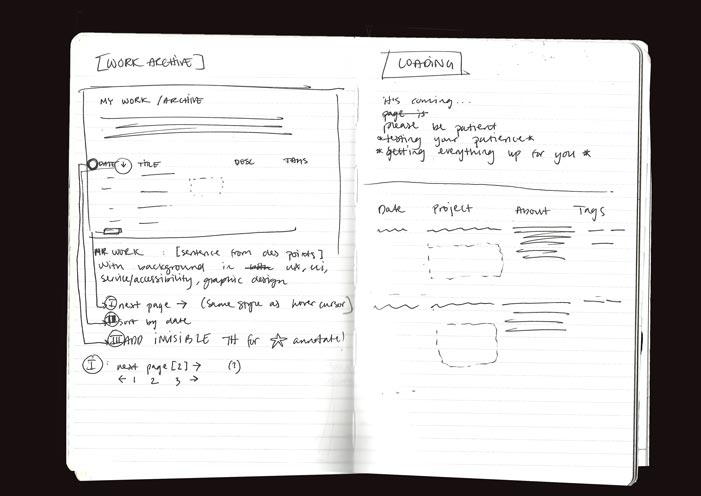 [WORK ARCHIVE]
MY WORK / ARCHIVE
DATE ↓ TITLE DESC TAGS
WORK : [sentence from des points]
with background in ux, ui,
service/accessibility, graphic design
I next page → (same style as hover cursor)
II sort by date
III ADD INVISIBLE TH for ☆ annotate!
I : next page [2] → (?)
← 1 2 3 →
LOADING
it's coming...
page is
please be patient
*testing your patience*
*getting everything up for you *
Date Project About Tags